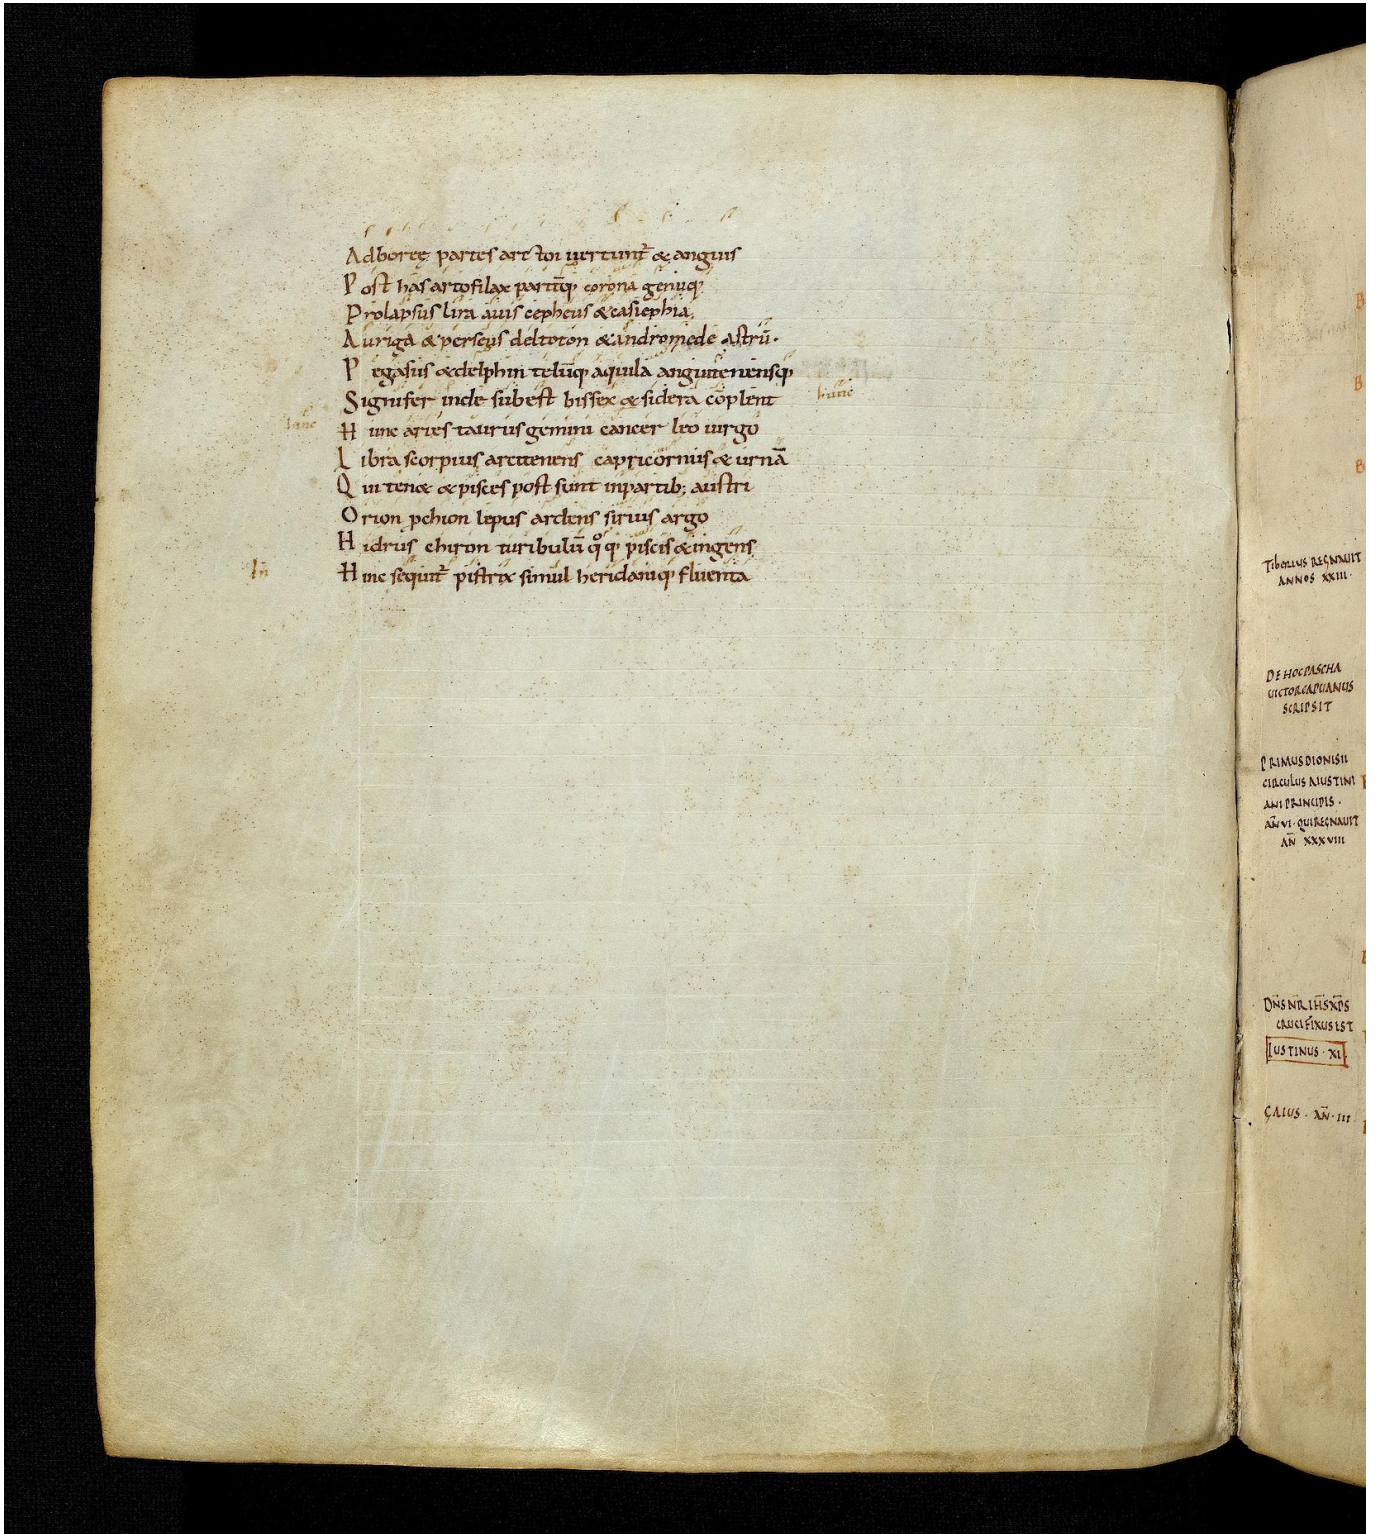 Adboreę partes arctoi uertunt̄ & anguis
Post has artofilax paritꝫq; corona geniuq;
Prolapsus lira auis cepheus & casiephia.
Auriga & perseus deltoton & andromede astrū.
Pegasus & delphin telūq; aquila anguitenensq;
Signifer inde subest bissex & sidera cōplent
hunc
Hunc aries taurus gemini cancer leo uirgo
Libra scorpius arcitenens capricornus & urnā
Qui ten& & pisces post sunt inpartib; austri
Orion pchion lepus ardens sirius argo
Hidrus chiron turibulū qͦq; piscis & ingens
Hinc sequunt̄ pistrix simul heridaniq; fluenta
Tiberius regnauit
annos xxiii.
De hoc pascha
uictor capuanus
scripsit
Primus dionisii
circulus a iustini
ani principis.
an̄ vi. qui regnauit
an̄ xxxviii
Dn̄s nr̄ ih̄s xp̄s
crucifixus est
Iustinus. xi
Gaius. an̄. iii